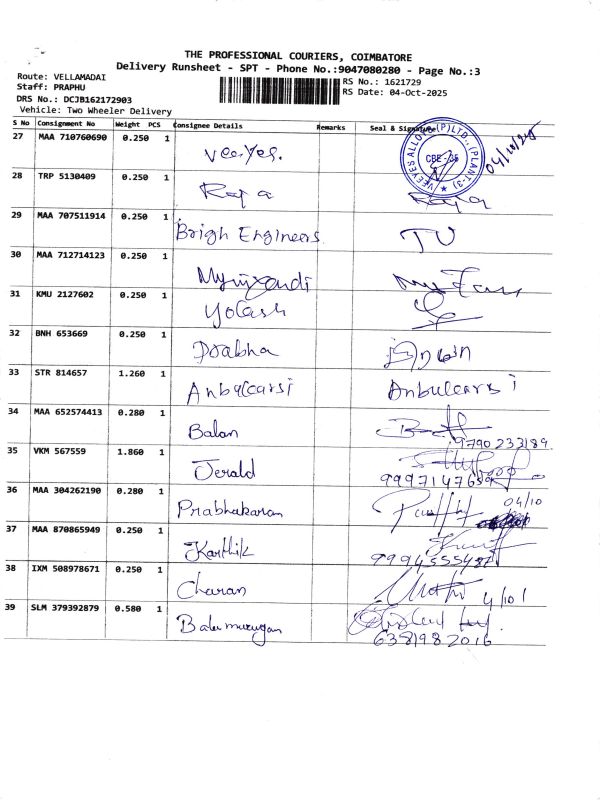 THE PROFESSIONAL COURIERS, COIMBATORE
Delivery Runsheet - SPT - Phone No.:9047080280 - Page No.:3
Route: VELLAMADAI
RS No.: 1621729
Staff: PRAPHU
RS Date: 04-Oct-2025
DRS No.: DCJB162172903
Vehicle: Two Wheeler Delivery
S No Consignment No Weight PCS Consignee Details Remarks Seal & Signature
27 MAA 710760690 0.250 1 Veeyes. VEEYES ALLOY (P) LTD., (PLANT-3) CBE - 35 04/10/25
28 TRP 5130409 0.250 1 Raja Raja
29 MAA 707511914 0.250 1 Brigh Engineers
30 MAA 712714123 0.250 1
31 KMU 2127602 0.250 1 Yokash
32 BNH 653669 0.250 1 Prabha
33 STR 814657 1.260 1 Anbu
34 MAA 652574413 0.280 1 Balan
9790233189
35 VKM 567559 1.860 1 Jerald
36 MAA 304262190 0.280 1 Prabhakaran 04/10
37 MAA 870865949 0.250 1 Karthik
38 IXM 508978671 0.250 1 Charan 4/10
39 SLM 379392879 0.580 1 Balamurugan
6381982016